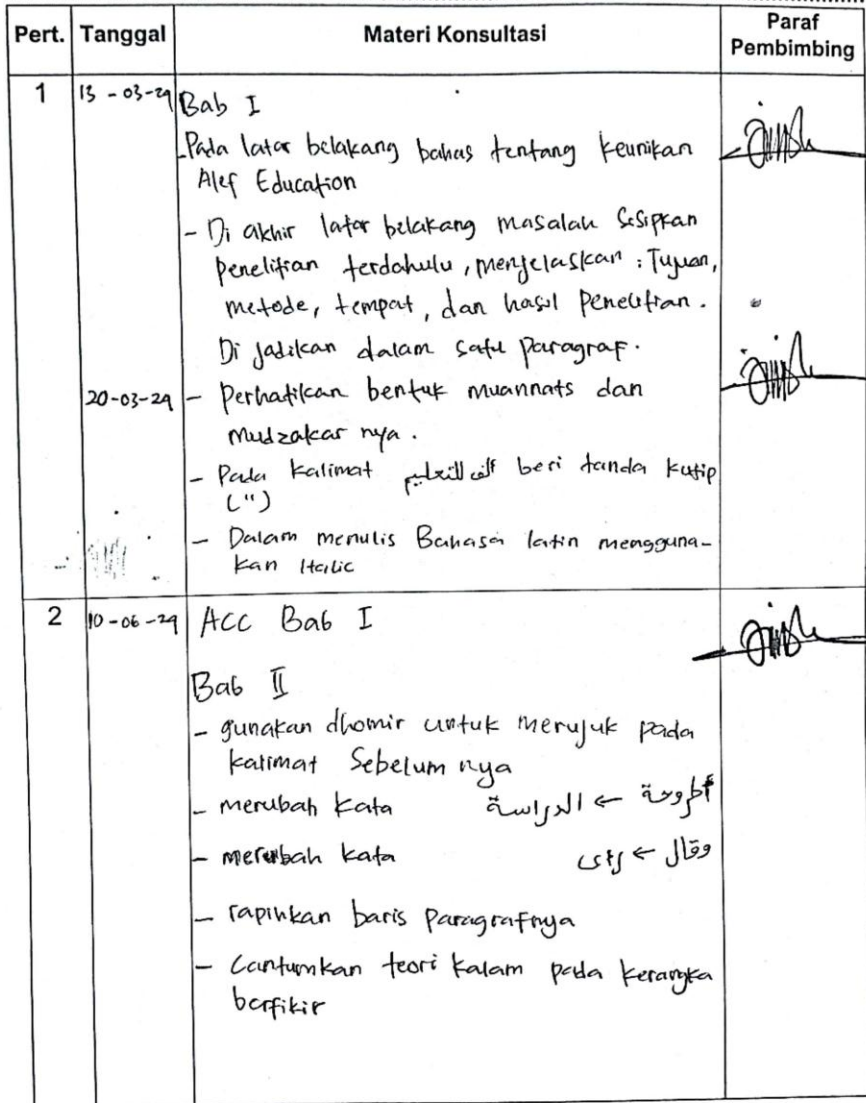 Pert. Tanggal Materi Konsultasi Paraf Pembimbing
1 13-03-24 Bab I
- Pada latar belakang bahas tentang keunikan
Alef Education
- Di akhir latar belakang masalah sisipkan
penelitian terdahulu, menjelaskan : Tujuan,
metode, tempat, dan hasil penelitian.
Di jadikan dalam satu paragraf.
20-03-24 - Perhatikan bentuk muannats dan
mudzakar nya.
- Pada kalimat ألف للتعليم beri tanda kutip
(")
- Dalam menulis Bahasa latin mengguna-
kan Italic
2 10-06-24 ACC Bab I
Bab II
- gunakan dhomir untuk merujuk pada
kalimat Sebelum nya
- merubah kata أطروحة ← الدراسة
- merubah kata وقال ← رأى
- rapihkan baris paragrafnya
- Cantumkan teori kalam pada kerangka
berfikir